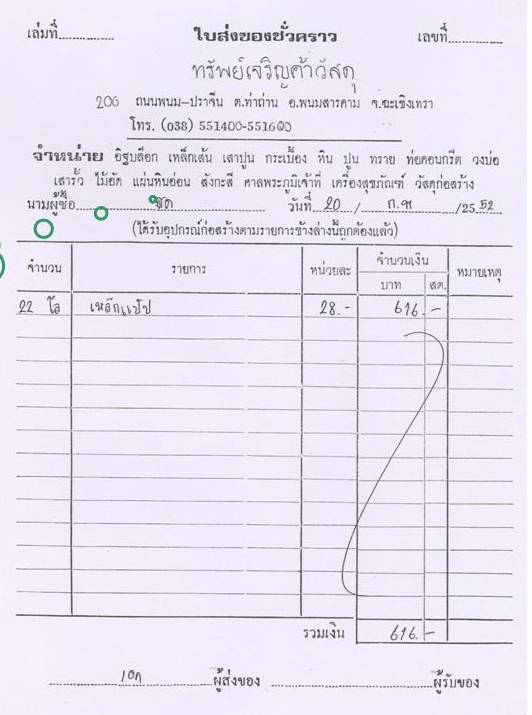 เล่มที่ ใบส่งของชั่วคราว เลขที่
ทรัพย์เจริญค้าวัสดุ
206 ถนนพนม-ปราจีน ต.ท่าถ่าน อ.พนมสารคาม จ.ฉะเชิงเทรา
โทร. (038) 551400-551600
จำหน่าย อิฐบล็อก เหล็กเส้น เสาปูน กระเบื้อง หิน ปูน ทราย ท่อคอนกรีต วงบ่อ
เสารั้ว ไม้อัด แผ่นหินอ่อน สังกะสี ศาลพระภูมิเจ้าที่ เครื่องสุขภัณฑ์ วัสดุก่อสร้าง
นามผู้ซื้อ วันที่ 20 / ก.พ /2552
(ได้รับอุปกรณ์ก่อสร้างตามรายการข้างล่างนี้ถูกต้องแล้ว)
จำนวน รายการ หน่วยละ จำนวนเงิน หมายเหตุ
บาท สต.
22 โล เหล็กแป๊ป 28.- 616.-
รวมเงิน 616.-
ผู้ส่งของ ผู้รับของ